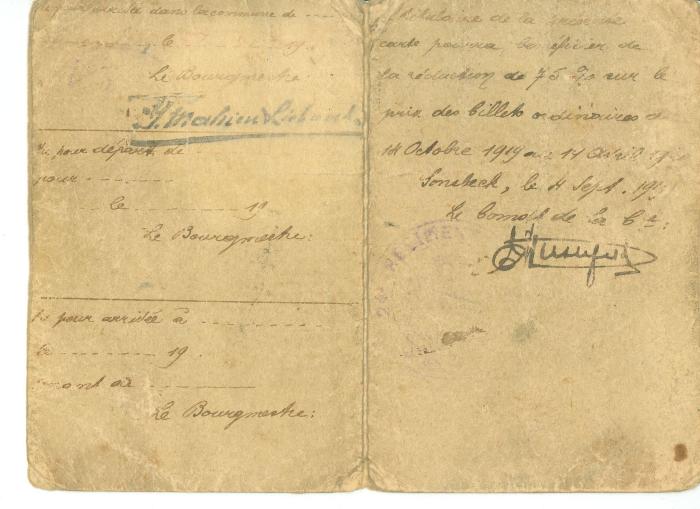 arrivée dans la commune de
le 19
Le Bourgmestre
J. Mahieu
Vu pour départ de
pour
le 19
Le Bourgmestre:
Vu pour arrivée à
le 19
venant de
Le Bourgmestre:
Titulaire de la présente
carte pourra bénéficier de
la réduction de 75 % sur le
prix des billets ordinaires du
14 Octobre 1919 au 14 Avril
Sonsbeck, le 4 Sept. 19
Le Comdt de la Cie:
RÉGIMENT